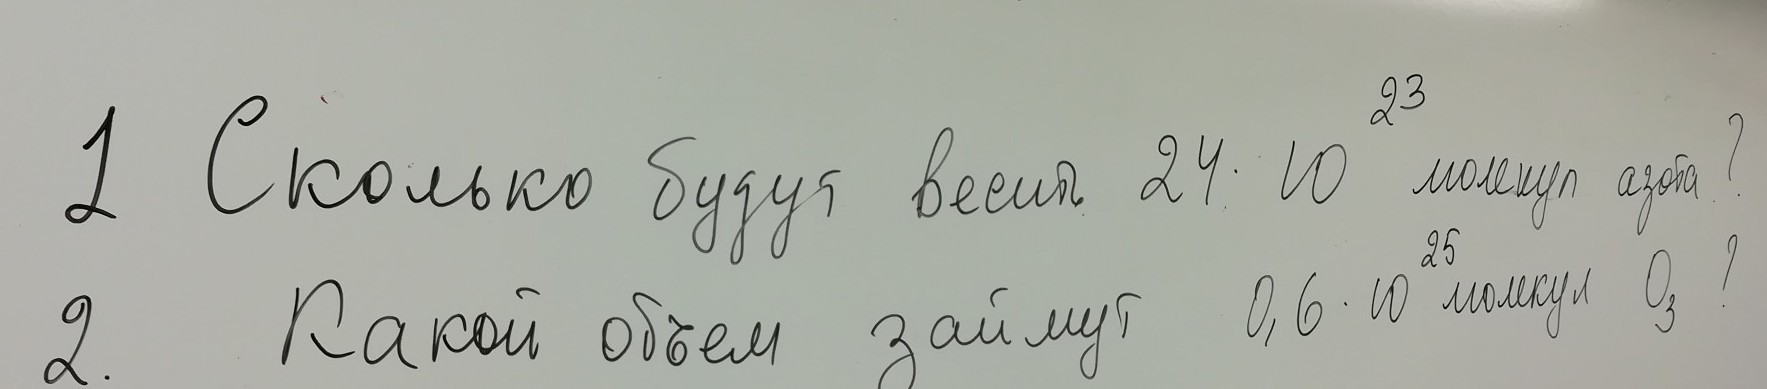 1 Сколько будут весить 24· 10²³ молекул азота?
2. Какой объем займут 0,6·10²⁵ молекул O₃?